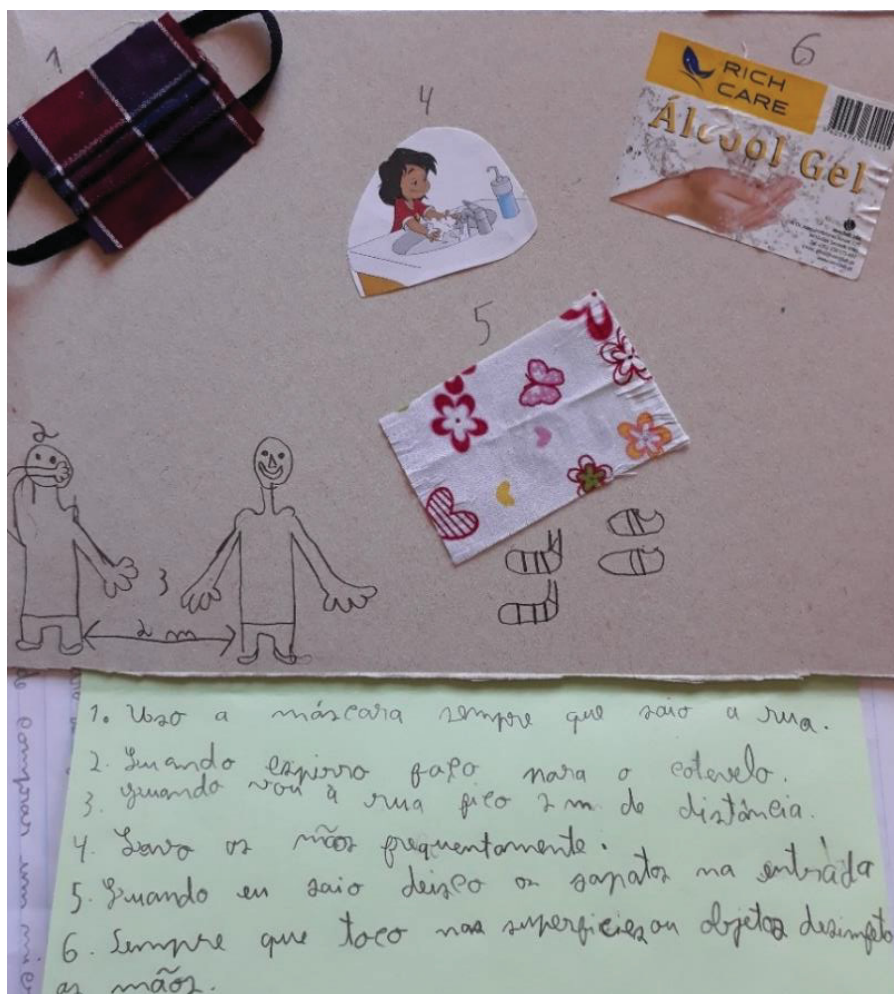 1
4
6
RICH
CARE
Álcool Gel
5
2
3
2 m
1. Uso a máscara sempre que saio a rua.
2. Quando espirro faço para o cotovelo.
3. Quando vou à rua fico 2 m de distância.
4. Lavo as mãos frequentamente.
5. Quando eu saio deisco os sapatos na entrada
6. Sempre que toco nas superfícies ou objetos desimfeto
as mãos.